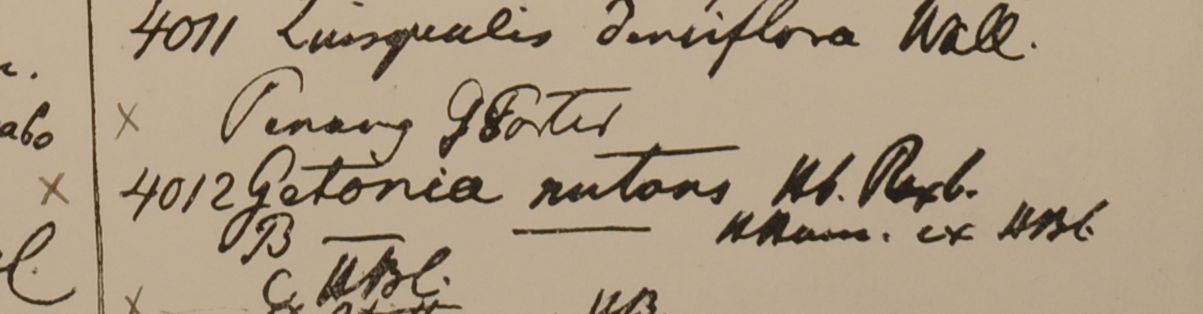 4011 Quisqualis densiflora Wall.
× Penang G Porter
× 4012 Getonia nutans Hb. Roxb.
B — — HHam. ex HBC.
C HBC.
× HB